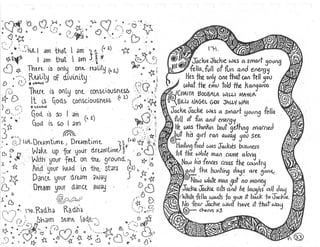 I am that I am
I am that I am
There is only one reality (x2)
Reality of divinity
There is only one consciousness
It is Gods consciousness (x2)
God is so I am
God is so I am (x2)
Dreamtime, Dreamtime
Wake up for your dreamtime
With your feet on the ground,
And your head in the stars (x2)
Dance your dream away
Dream your dance away
170. Radha Radha
Shyam
171.
Jackie Jackie was a smart young
fella, full of fun and energy
Hes the only one that can tell you
what the emu told the Kangaroo
Jackie Jackie was a smart young fella
full of fun and energy
He was thinkin bout getting married
but his girl ran away you see
Hunting food was Jackies business
till the white man came along
Now his fences cross the country
and the hunting days are gone.
Now white man got no money
Jackie Jackie sits and he laughs all day
White fella wants to give it back to Jackie
No fear Jackie wont have it that way
chorus x3